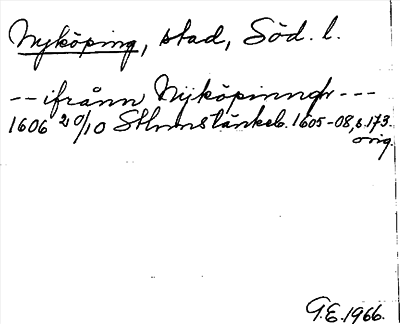 Nyköping, stad, Söd. l.
-- ifrånn Nyköpinngh ---
1606 20/10 Sthms tänkeb. 1605-08, s. 173.
orig.
G.E. 1966.